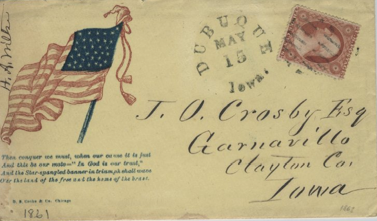 DUBUQUE
MAY
15
Iowa
J. O. Crosby Esq
Garnavillo
Clayton Co.
Iowa
Then conquer we must, when our cause it is just
And this be our motto—"In God is our trust,"
And the Star-spangled banner in triumph shall wave
O'er the land of the free and the home of the brave.
& Co. Chicago